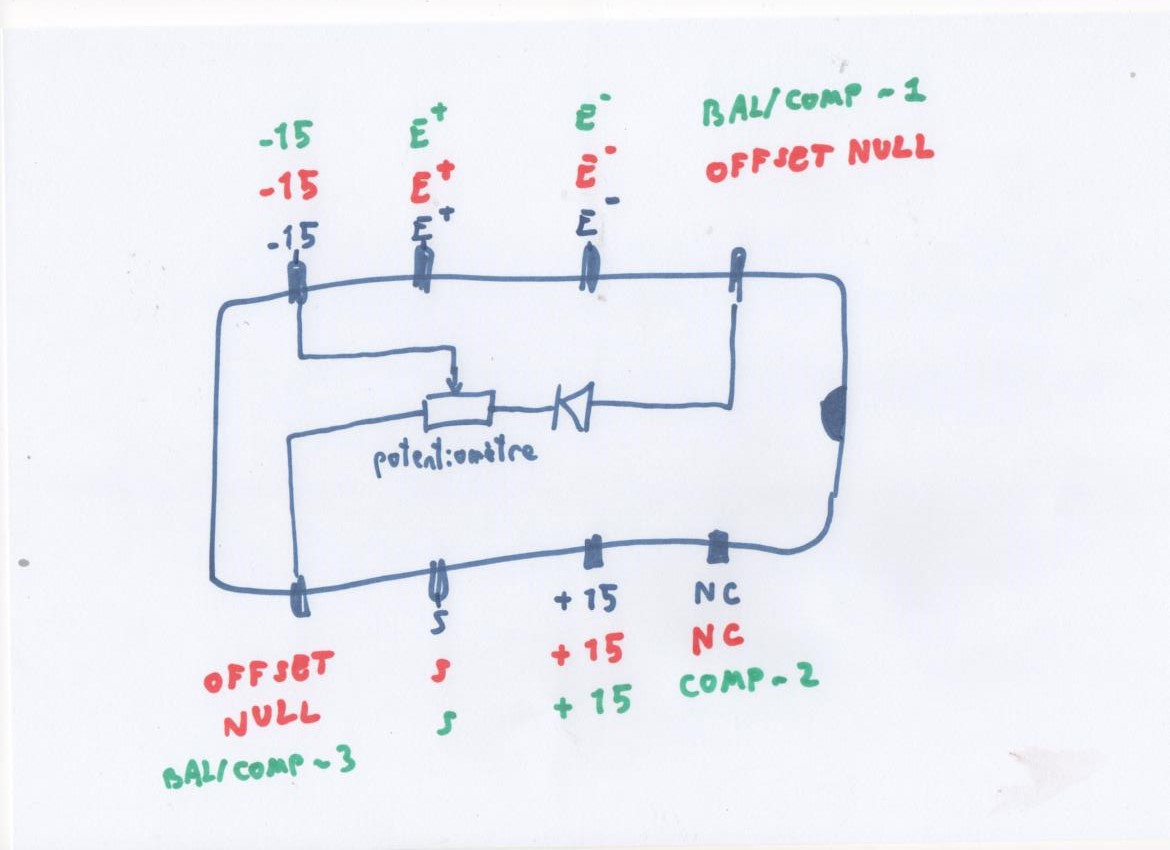 -15 E+ E- BAL/COMP-1
-15 E+ E- OFFSET NULL
-15 E+ E-
potentiomètre
S +15 NC
OFFSET S +15 NC
NULL S +15 COMP-2
BAL/COMP-3